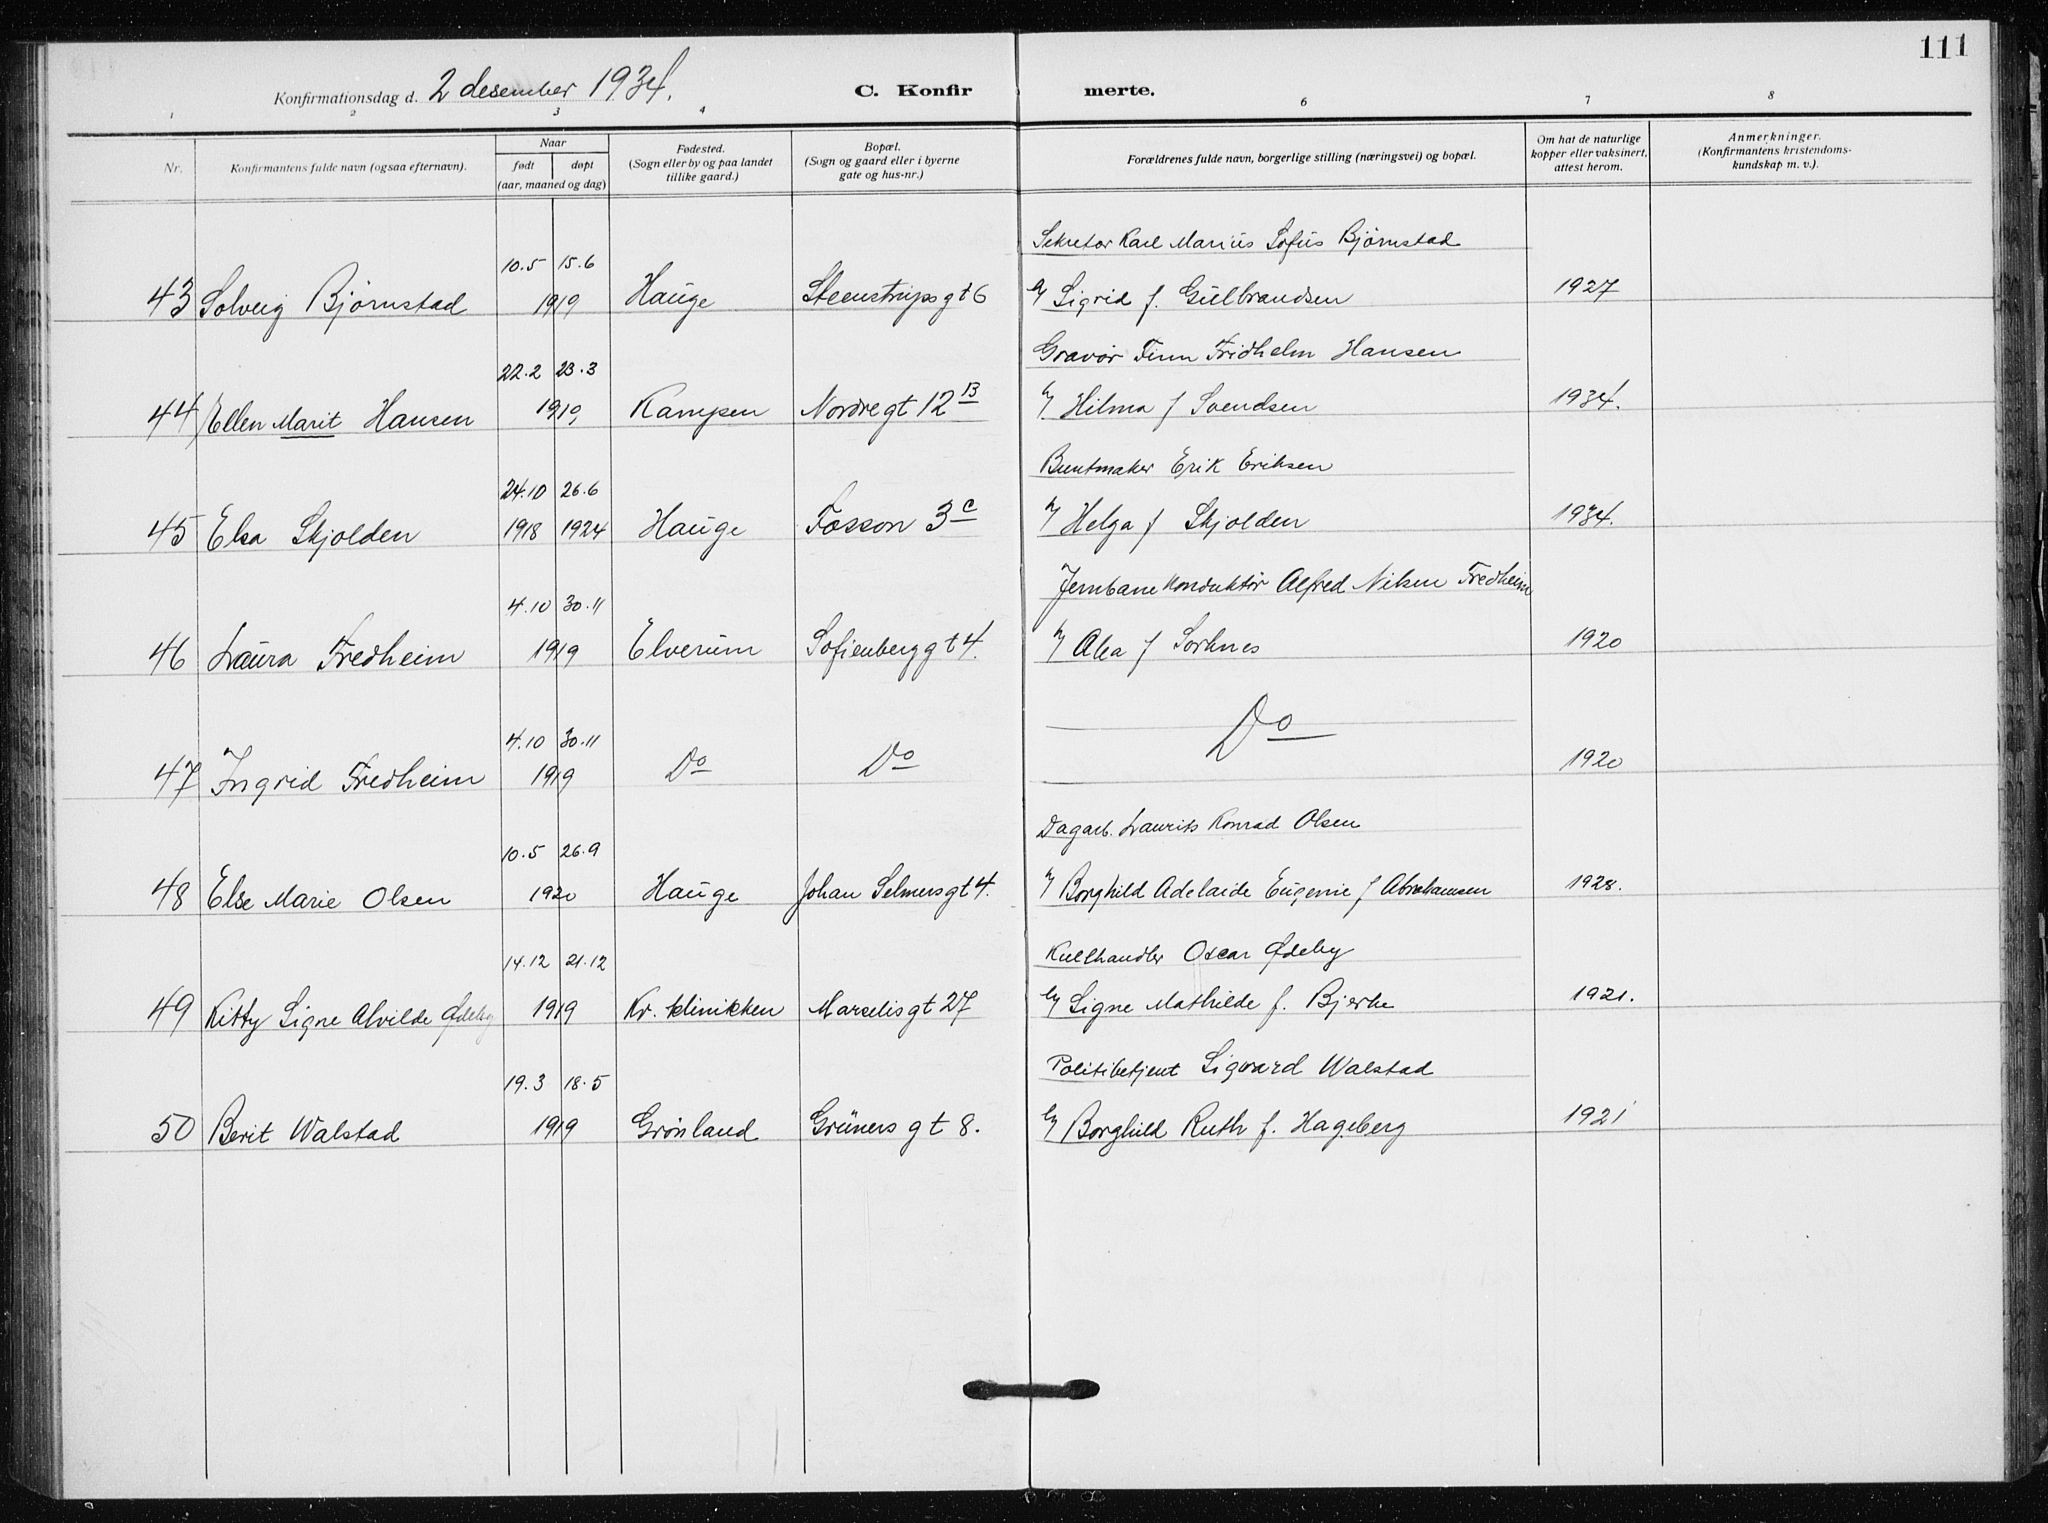 111
Konfirmationsdag d. 2 desember 1934.
C. Konfirmerte.
1 2 3 4 6 7 8
Nr. Konfirmantens fulde navn (ogsaa efternavn). Naar født døpt (aar, maaned og dag) Fødested. (Sogn eller by og paa landet tillike gaard.) Bopæl. (Sogn og gaard eller i byerne gate og hus-nr.) Forældrenes fulde navn, borgerlige stilling (næringsvei) og bopæl. Om hat de naturlige kopper eller vaksinert, attest herom. Anmerkninger. (Konfirmantens kristendomskundskap m. v.).
Sekretær Karl Marius Sofus Bjørnstad
10.5 15.6
43 Solveig Bjørnstad 1919 Hauge Steenstrupsgt 6 Sigrid f. Gulbrandsen 1927
Gravør Finn Fridhelm Hansen
22.2 23.3
44 Ellen Marit Hansen 1919 Kampen Nordregt 12 B Hilma f Svendsen 1934.
Buntmaker Erik Eriksen
24.10 26.6
45 Elsa Skjolden 1918 1924 Hauge Fossvn 3 c Helga f Skjolden 1934.
Jernbanekonduktør Alfred Nilsen Fredheim
4.10 30.11
46 Laura Fredheim 1919 Elverum Sofienberggt 4. f Sorknes 1920
Do
4.10 30.11
47 Ingrid Fredheim 1919 Do Do 1920
Dagarb. Laurits Konrad Olsen
10.5 26.9
48 Else Marie Olsen 1920 Hauge Johan Selmersgt 4. Borghild Adelaide Eugenie f Abrahamsen 1928.
Kullhandler Oscar Ødeby
14.12 21.12
49 Kitty Signe Alvilde Ødeby 1919 Kr. klinikken Marselisgt 27 Signe Mathilde f. Bjerke 1921.
Politibetjent Sigvard Walstad
19.3 18.5
50 Berit Walstad 1919 Grønland Grüners gt 8. Borghild Ruth f. Hageberg 1921